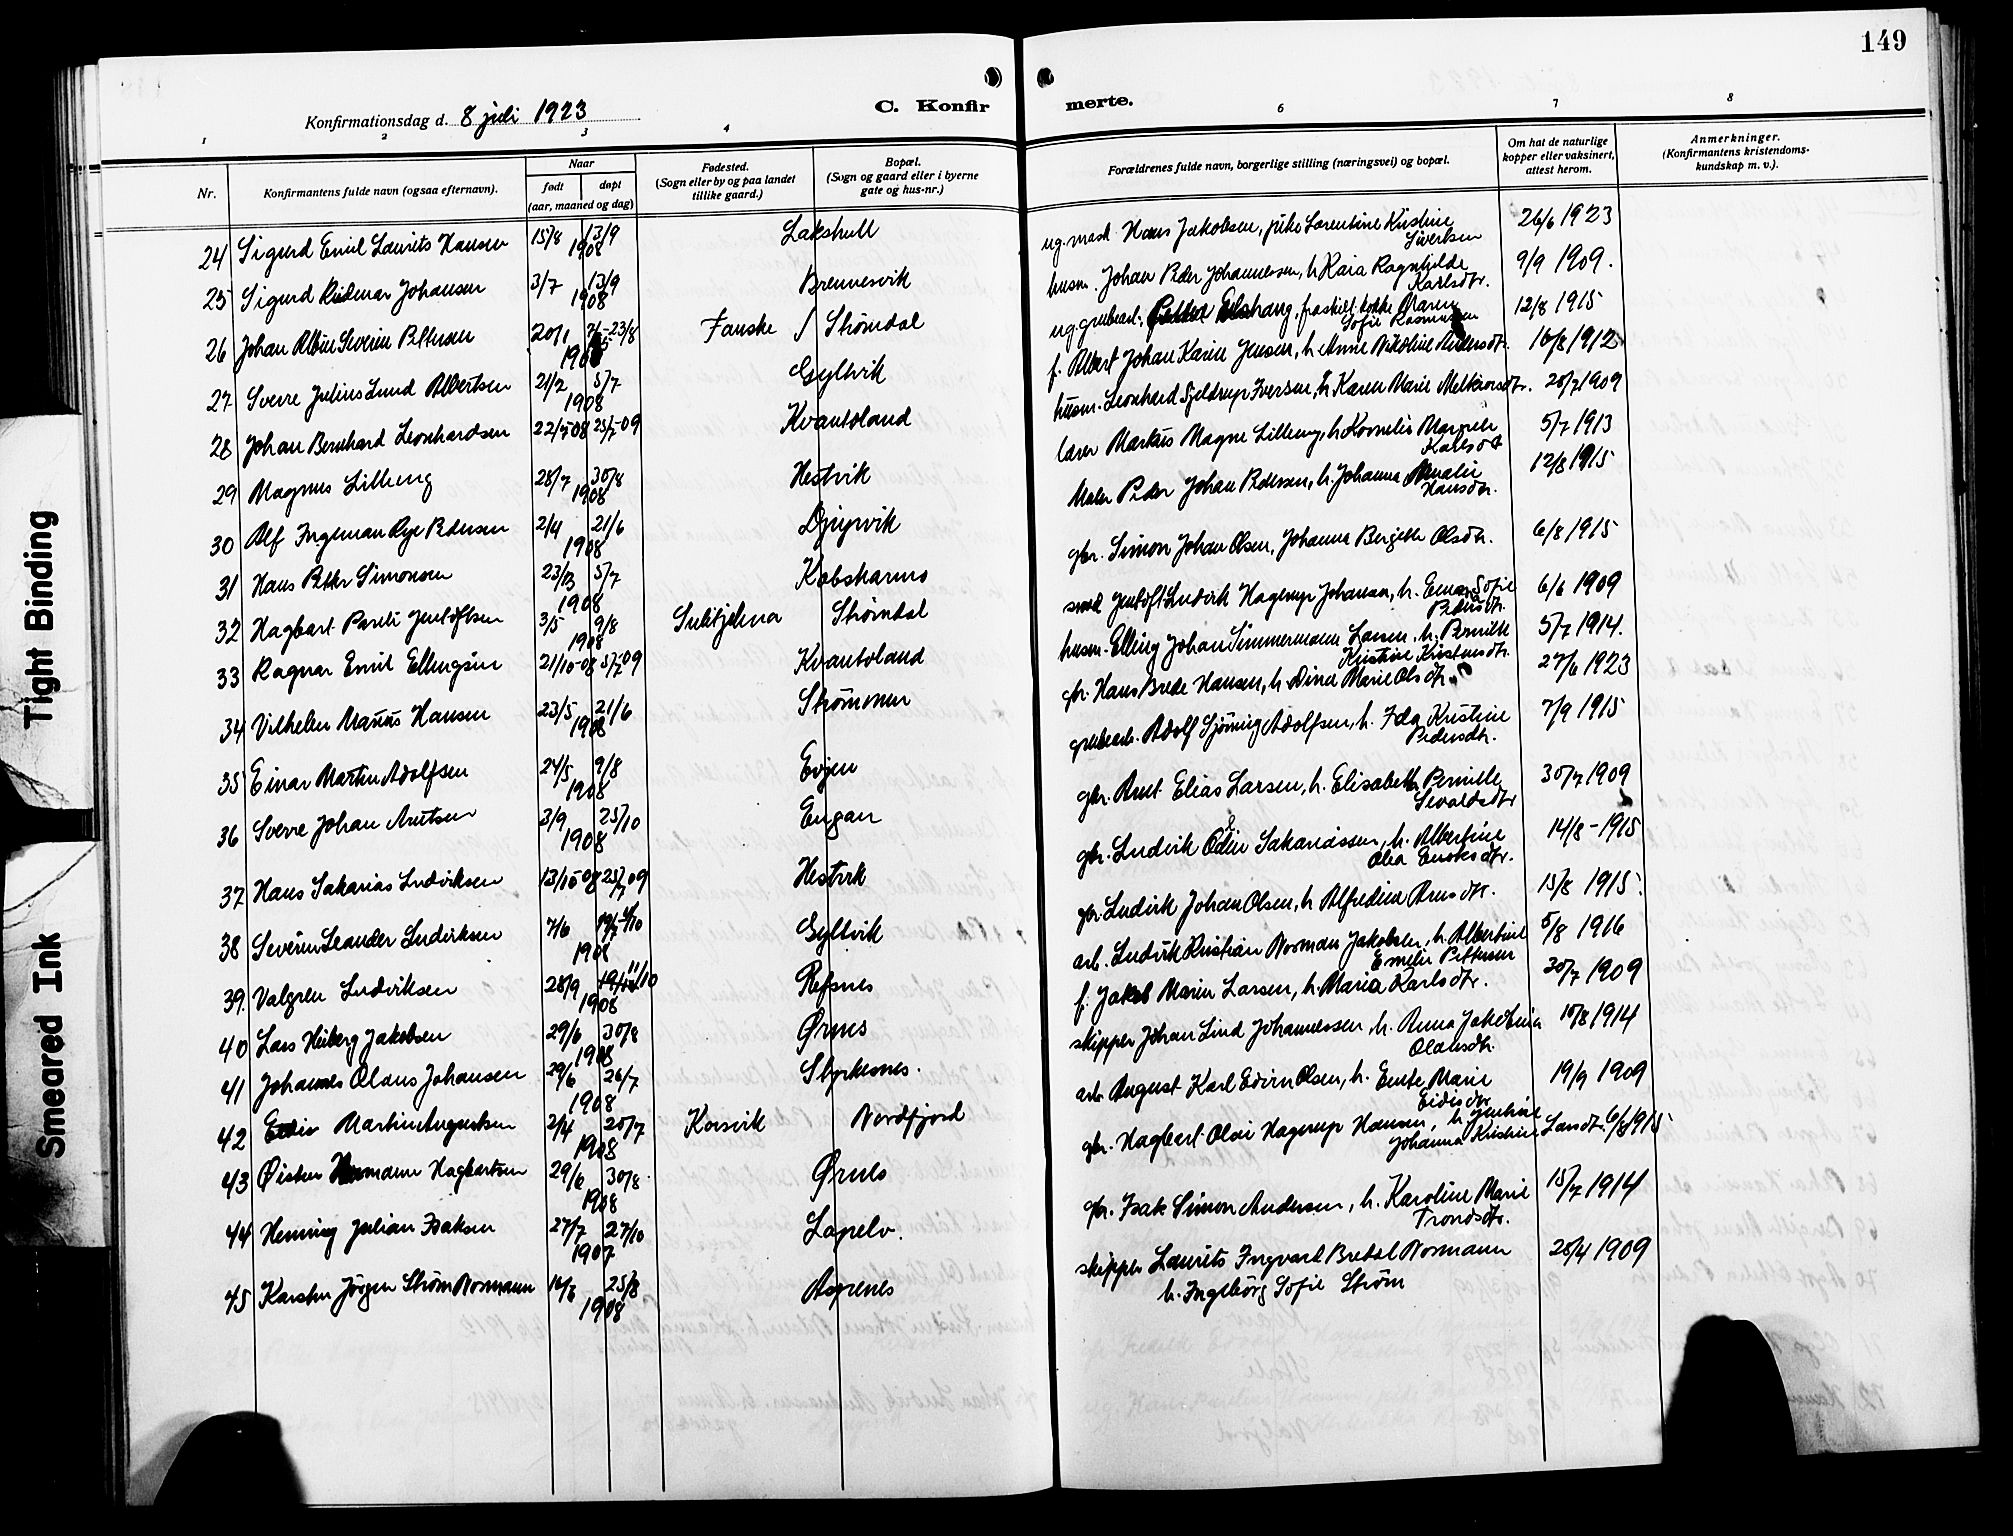 149
C. Konfirmerte.
Konfirmationsdag d. 8 juli 1923
1 2 3 4 6 7 8
Nr.
Konfirmantens fulde navn (ogsaa efternavn).
Naar
født døpt
(aar, maaned og dag)
Fødested.
(Sogn eller by og paa landet
tillike gaard.)
Bopæl.
(Sogn og gaard eller i byerne
gate og hus-nr.)
Forældrenes fulde navn, borgerlige stilling (næringsvei) og bopæl.
Om hat de naturlige
kopper eller vaksinert,
attest herom.
Anmerkninger.
(Konfirmantens kristendoms-
kundskap m. v.).
24 Sigurd Emil Laurits Hansen 15/8 13/9 1908 Lakshull ug. mask Hans Jakobsen, pike Lorentine Kristine Sivertsen 26/6 1923
25 Sigurd Johansen 3/7 13/9 1908 Brennesvik husm. Johan Peder Johannessen, h. Kaia Ragnhilde Karlsdtr. 9/9 1909.
26 Johan Albin Severin Pettersen 20/1 23/8 1908 Fauske / Strømdal ug. grubearb. fraskilt kokke Maren Sofie Rasmussen 12/8 1915
27 Sverre Julius Lund Albertsen 21/2 5/7 1908 Gyltvik f. Albert Johan Karin Jensen, h. Anne Nikoline Andersdtr. 16/8 1912
28 Johan Bernhard Leonhardsen 22/5-08 25/7-09 Kvantoland husm. Leonhard Sjeldrup Iversen, h. Karen Marie Melkiorsdtr. 25/7 1909
29 Magnus Lilleeng 28/7 30/8 1908 Hestvik lærer Markus Magne Lilleeng, h. Kornelie Karlsdtr 5/7 1913
30 Alf Ingeman Rye Pedersen 2/4 21/6 1908 Djupvik Maler Peder Johan Pedersen, h. Johanna Amalie Hansdtr. 12/8 1915
31 Hans Petter Simonsen 23/3 5/7 1908 Kobskarmo gbr. Simon Johan Olsen, Johanna Bergette Olsdtr. 6/8 1915
32 Hagbart Pareli Jentoftsen 3/5 9/8 1908 Sulitjelma Strømdal smed Jentoft Ludvik Hagerup Johansen, h. Emma Sofie Pedersdtr. 6/6 1909
33 Ragnar Emil Ellingsen 21/10-08 5/7-09 Kvantoland husm. Elling Johan Simmermann Larsen, h. Pernille Kristine Kristensdtr. 5/7 1914.
34 Vilhelm Maurus Hansen 23/5 21/6 1908 Strømmen gbr. Hans Brede Hansen, h. Dina Marie Olsdtr. 27/6 1923
35 Einar Martin Adolfsen 24/5 9/8 1908 Evjen grubearb. Adolf Sjøning Adolfsen, h. Ida Kristine Pedersdtr. 7/9 1915
36 Sverre Johan Arntsen 3/9 25/10 1908 Engan gbr. Arnt Elias Larsen, h. Elisabeth Pernille Sivaldsdtr 30/7 1909
37 Hans Sakarias Ludviksen 13/10-08 25/7 09 Hestvik gbr. Ludvik Odin Sakariassen, h. Albertine Olea Enoksdtr. 14/8 - 1915
38 Severin Leander Ludviksen 7/6 4/10 1908 Gyltvik gbr. Ludvik Johan Olsen, h. Alfredine Arnsdtr. 15/8 1915.
39. Valgren Ludviksen 28/9 11/10 1908 Refsnes arb. Ludvik Kristian Norman Jakobsen, h. Albertine Emelie Pettersen 5/8 1916
40 Lars Heiberg Jakobsen 29/6 30/8 1908 Ørnes f. Jakob Marin Larsen, h. Maria Karlsdtr. 30/7 1909
41 Johannes Olaus Johansen 29/6 26/7 1908 Styrkesnes. skipper Johan Lind Johannessen, h. Anna Jakobina Olausdtr. 15/8 1914
42 Edvin Martin Augustsen 2/4 20/7 1908 Korsvik Nordfjord arb. August Karl Edvin Olsen, h. Emte Marie Eidisdtr 19/9 1909
43 Øisten Hermann Hagbartsen 29/6 30/8. 1908 Ørnes gbr. Hagbart Olai Hagerup Hansen, h. Jentine Johanna Kristine Larsdtr. 6/8 1915
44 Henning Julian Isaksen 27/7 27/10 1907 Lapelv. gbr. Isak Simon Andersen, h. Karoline Marie Trondsdtr. 15/7 1914
45 Karsten Jörgen Strøm Normann 14/6 25/8 1908 Aspenes skipper Laurits Ingvart Bredal Normann 28/4 1909
h. Ingebörg Sofie Strøm
Tight Binding
Smeared Ink